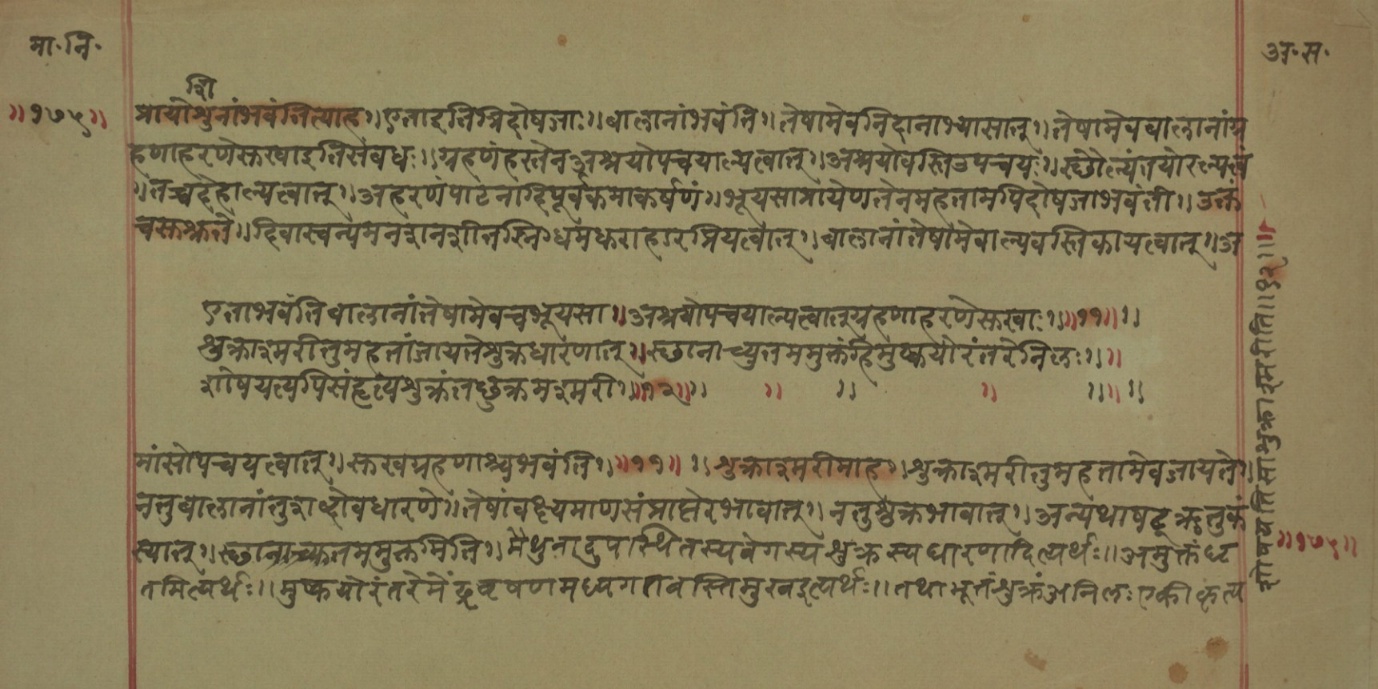 मा॰ नि॰
अ॰ स॰
शि
॥१७५॥
प्रायोशुनांभवंतित्याह॥एताइतित्रिदोषजाः॥बालानांभवंति॥तेषामेवनिदानाभ्यासात्॥तेषामेवबालानांग्र
हणाहरणेसुखाइतिसंबंधः॥ग्रहणंहस्तेनआश्रयोपचयाल्पत्वात्॥आश्रयोवस्तिउपचयः॥स्थौल्यंतयोरल्पत्वं
॥तच्चदेहाल्पत्वात्॥आहरणंपाटनादिपूर्वकमाकर्षणं॥भूयसाप्रायेणतेनमहतामपिदोषजाभवंती॥उक्तं
चसुश्रुते॥दिवास्वप्नसमनशनशीतस्निग्धमधुराहारप्रियत्वात्॥बालानांतेषामेवाल्पवस्तिकायत्वात्॥अ
एताभवंतिबालानांतेषामेवचभूयसा॥आश्रयोपचयाल्पत्वात्ग्रहणाहरणेसुखाः॥११॥
शुक्राश्मरीतुमहतांजायतेशुक्रधारणात्॥स्थानाच्युतममुक्तंहिमुष्कयोरंतरेनिलः॥
शोषयत्यपिसंहृत्यशुक्रंतच्छुक्रमश्मरी॥१२॥
मांसोपचयत्वात्॥सुखग्रहणाश्चभवंति॥११॥शुक्राश्मरीमाह॥शुक्राश्मरीतुमहतामेवजायते॥
नतुबालानांतुशब्दोवधारणे॥तेषांवक्ष्यमाणसंप्राप्तेरभावात्॥नतुशुक्रभावात्॥अन्यथाषट्ऋतुकं
स्यात्॥स्थानाच्युतममुक्तमिति॥मैथुनादुपस्थितस्यवेगस्यशुक्रस्यधारणादित्यर्थः॥अमुक्तंधृ
तमित्यर्थः॥मुष्कयोरंतरेमेंढ्रवृषणमध्यगतवस्तिमुखइत्यर्थः॥तथाभूतंशुक्रंअनिलःएकीकृत्य
शोषयतिसाशुक्राश्मरीति॥१२॥
॥१७५॥